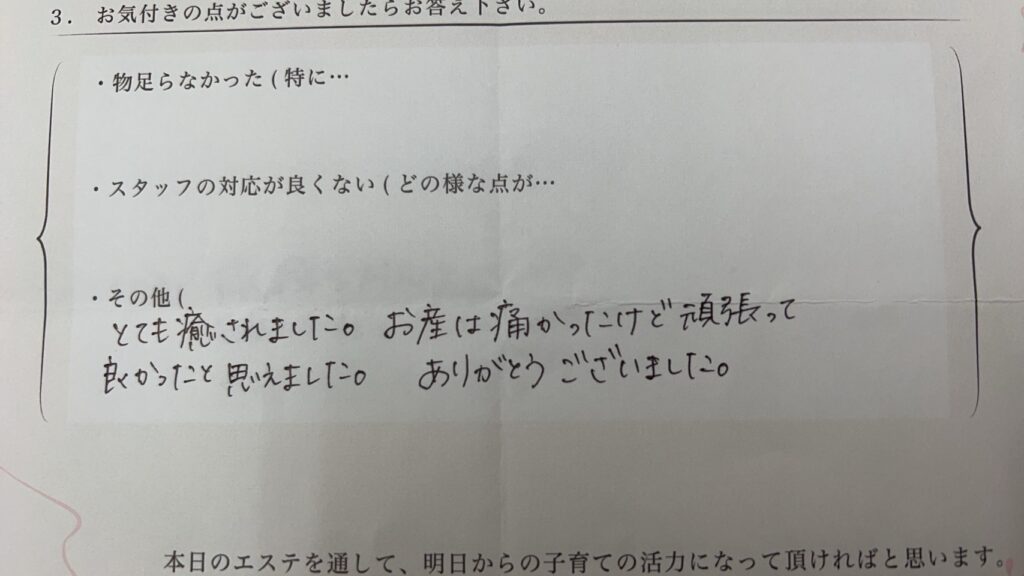 3． お気付きの点がございましたらお答え下さい。
・物足らなかった ( 特に…
・スタッフの対応が良くない ( どの様な点が…
・その他 (
とても癒されました。 お産は痛かったけど頑張って
良かったと思えました。 ありがとうございました。
本日のエステを通して、明日からの子育ての活力になって頂ければと思います。